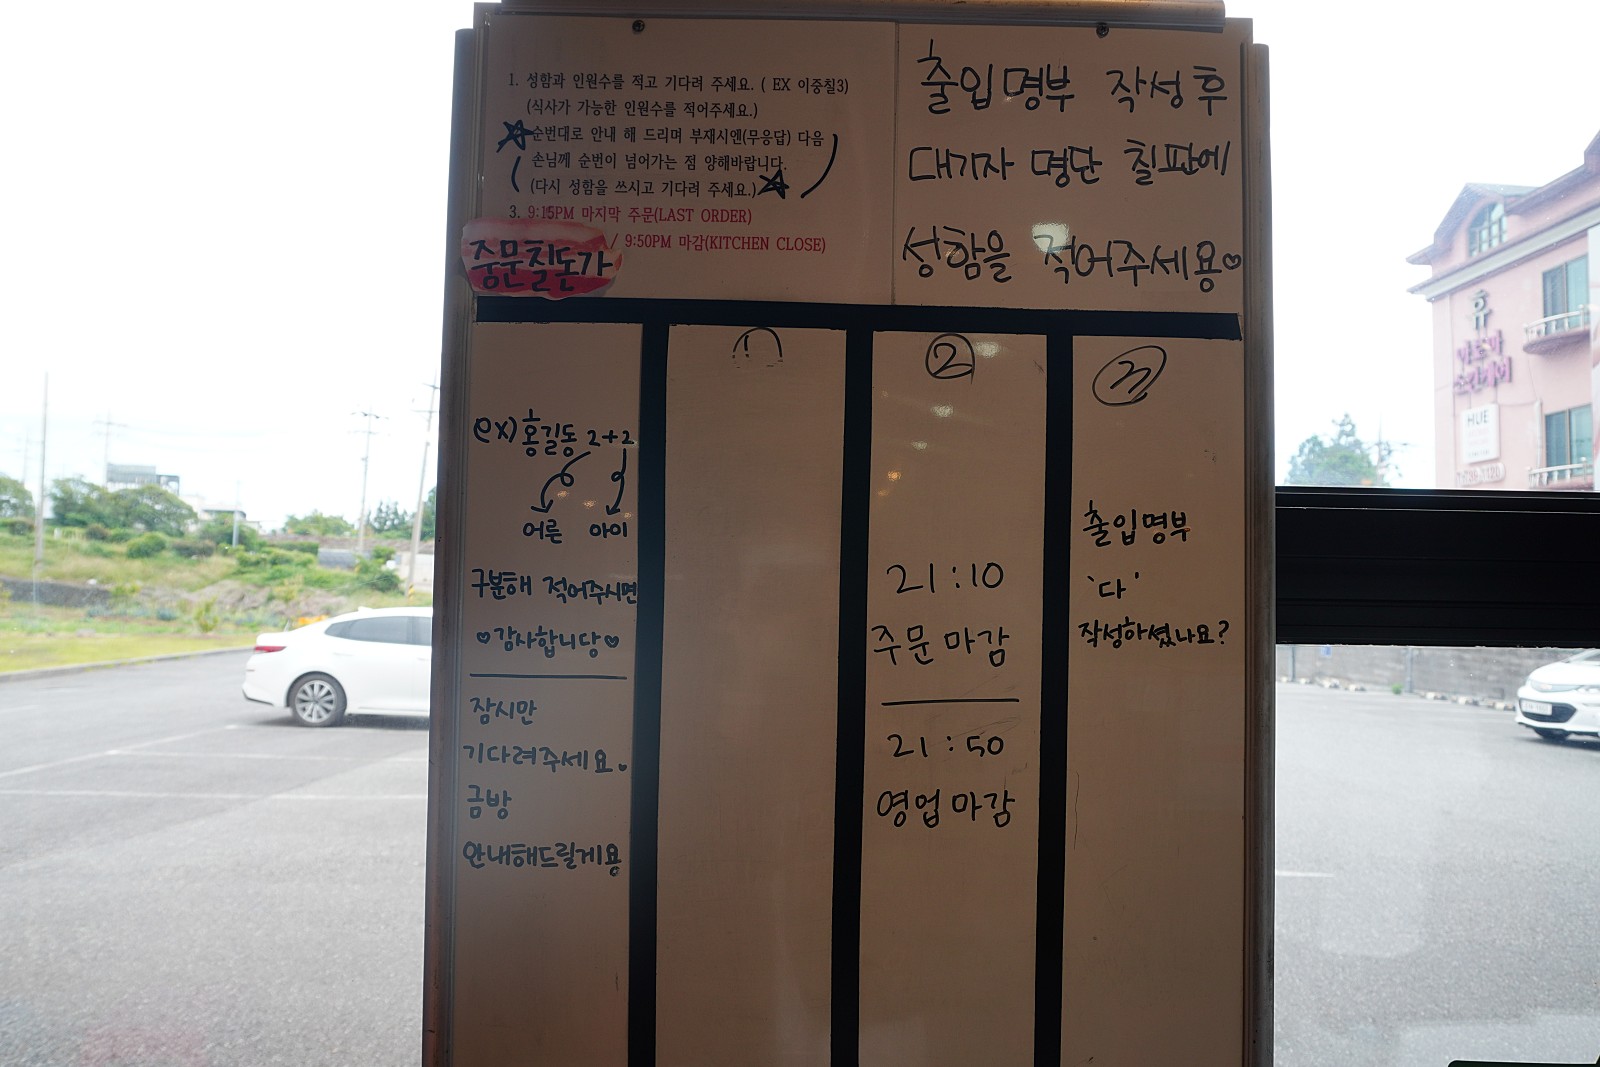 1. 성함과 인원수를 적고 기다려 주세요. ( EX 이중칠3)
(식사가 가능한 인원수를 적어주세요.)
순번대로 안내 해 드리며 부재시엔(무응답) 다음
손님께 순번이 넘어가는 점 양해바랍니다.
(다시 성함을 쓰시고 기다려 주세요.)
3. 9:15PM 마지막 주문(LAST ORDER)
/ 9:50PM 마감(KITCHEN CLOSE)
중문칠돈가
출입명부 작성 후
대기자 명단 칠판에
성함을 적어주세용♡
ex) 홍길동 2+2
어른 아이
구분해 적어주시면
♡감사합니당♡
잠시만
기다려주세요.
금방
안내해드릴게용
①
②
21:10
주문 마감
21:50
영업 마감
③
출입명부
'다'
작성하셨나요?
휴
HUE